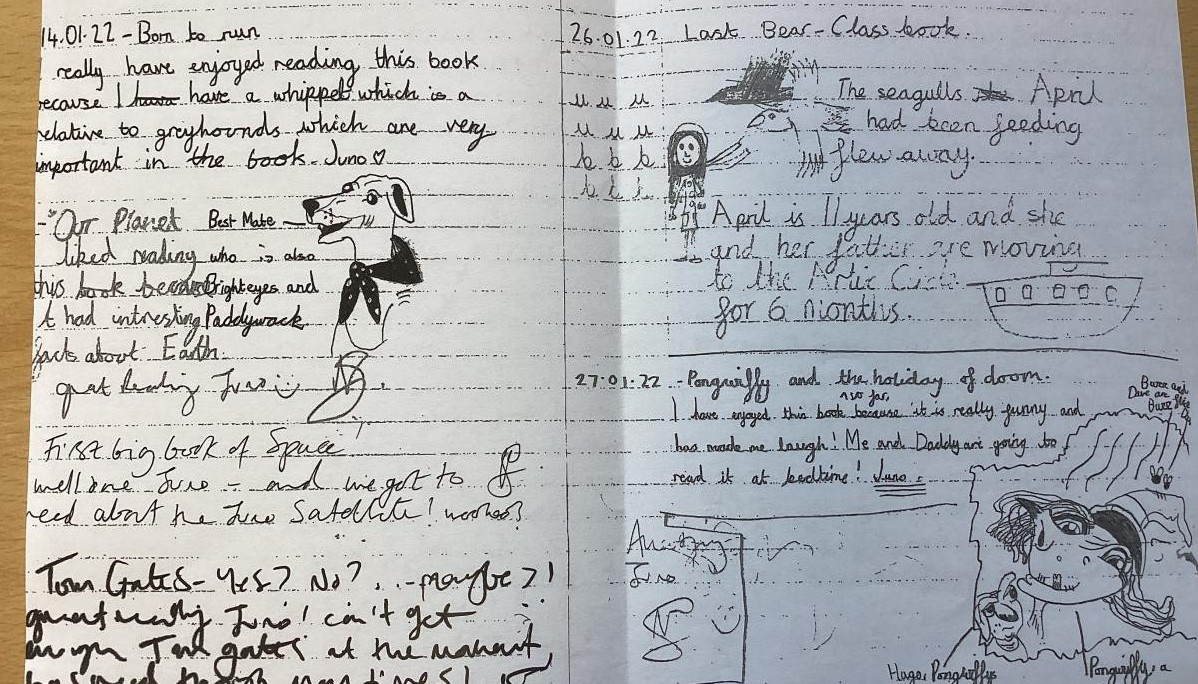 14.01.22 - Born to run
really have enjoyed reading this book
ecause I have have a whippet which is a
relative to greyhounds which are very
important in the book - Juno ♡
- "Our Planet
liked reading
this book becaus
t had intresting
facts about Earth.
great reading Juno
Best Mate
who is also
Brighteyes and
Paddywack
First big book of Space!
well done Juno - and we got to
read about the Juno Satellite! woohoo!
Tom Gates - Yes? No? ... maybe?!
great reading Juno! can't get
Tom gates at the moment,
26.01.22 Last Bear - Class book.
u u u
u u u
b b b
The seagulls April
had been feeding
flew away.
April is 11 years old and she
and her father are moving
to the Artic Circle
for 6 months.
27.01.22 - Pongwiffy and the holiday of doom.
so far,
I have enjoyed this book because it is really funny and
has made me laugh! Me and Daddy are going to
read it at bedtime! Juno.
Buzz and
Dave are
Buzz
Amazing
Juno
Hugo, Pongwiffys
Pongwiffy, a